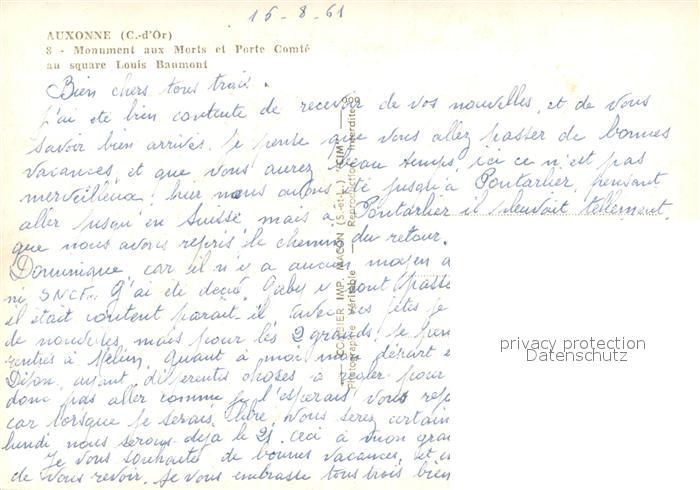 15-8-61
AUXONNE (C.-d'Or)
8 - Monument aux Morts et Porte Comté
au square Louis Baumont
Bien chers tous trois.
J'ai été bien contente de recevoir de vos nouvelles, et de vous
savoir bien arrivés. Je pense que vous allez passer de bonnes
vacances, et que vous aurez beau temps, ici ce n'est pas
merveilleux! hier nous avons été jusqu'à Pontarlier, pensant
aller jusqu'en Suisse mais à Pontarlier il pleuvait tellement,
que nous avons repris le chemin du retour.
Dominique, car il n'y a aucun moyen
ni SNCF. J'ai été Gaby y
il était content paraît il, avec les fêtes je
de nouvelles, mais pour les 2 grands! Je pen
rentrés à Melun. Quant à moi mon départ
Dijon, ayant différentes choses à régler pour
donc pas aller comme je l'espérais vous
car lorsque je serais libre, vous serez certain
lundi nous serons déjà le 21. ceci à mon gra
Je vous souhaite de bonnes vacances, et
de vous revoir. Je vous embrasse tous trois bien
COMBIER IMP. MACON (S.-et-L.) "CIM"
Photographie véritable - Reproduction interdite
privacy protection
Datenschutz